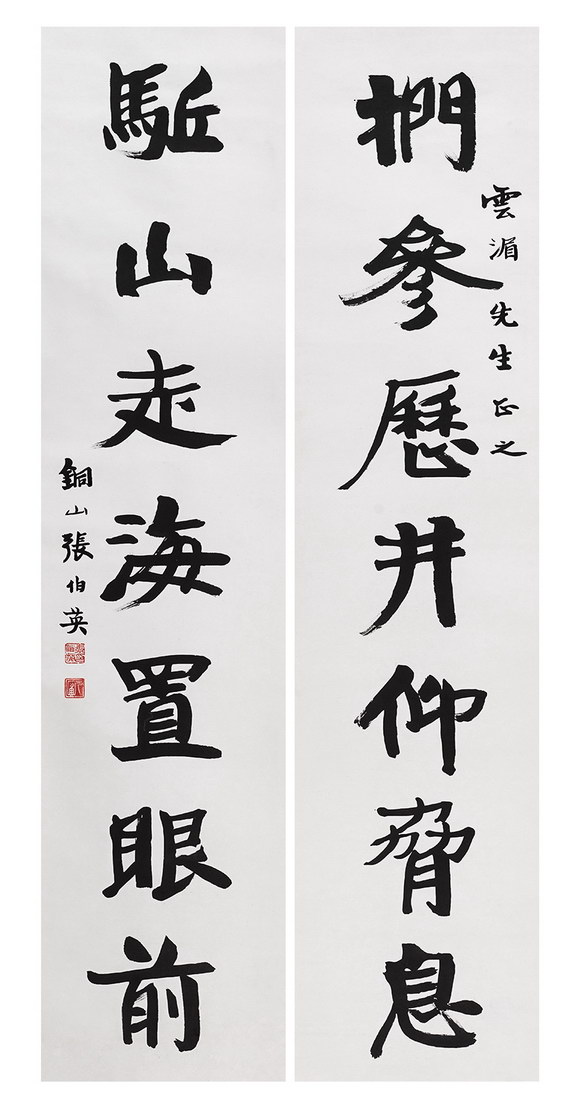 雲湄先生正之
捫參歷井仰脅息
駈山走海置眼前
銅山張伯英